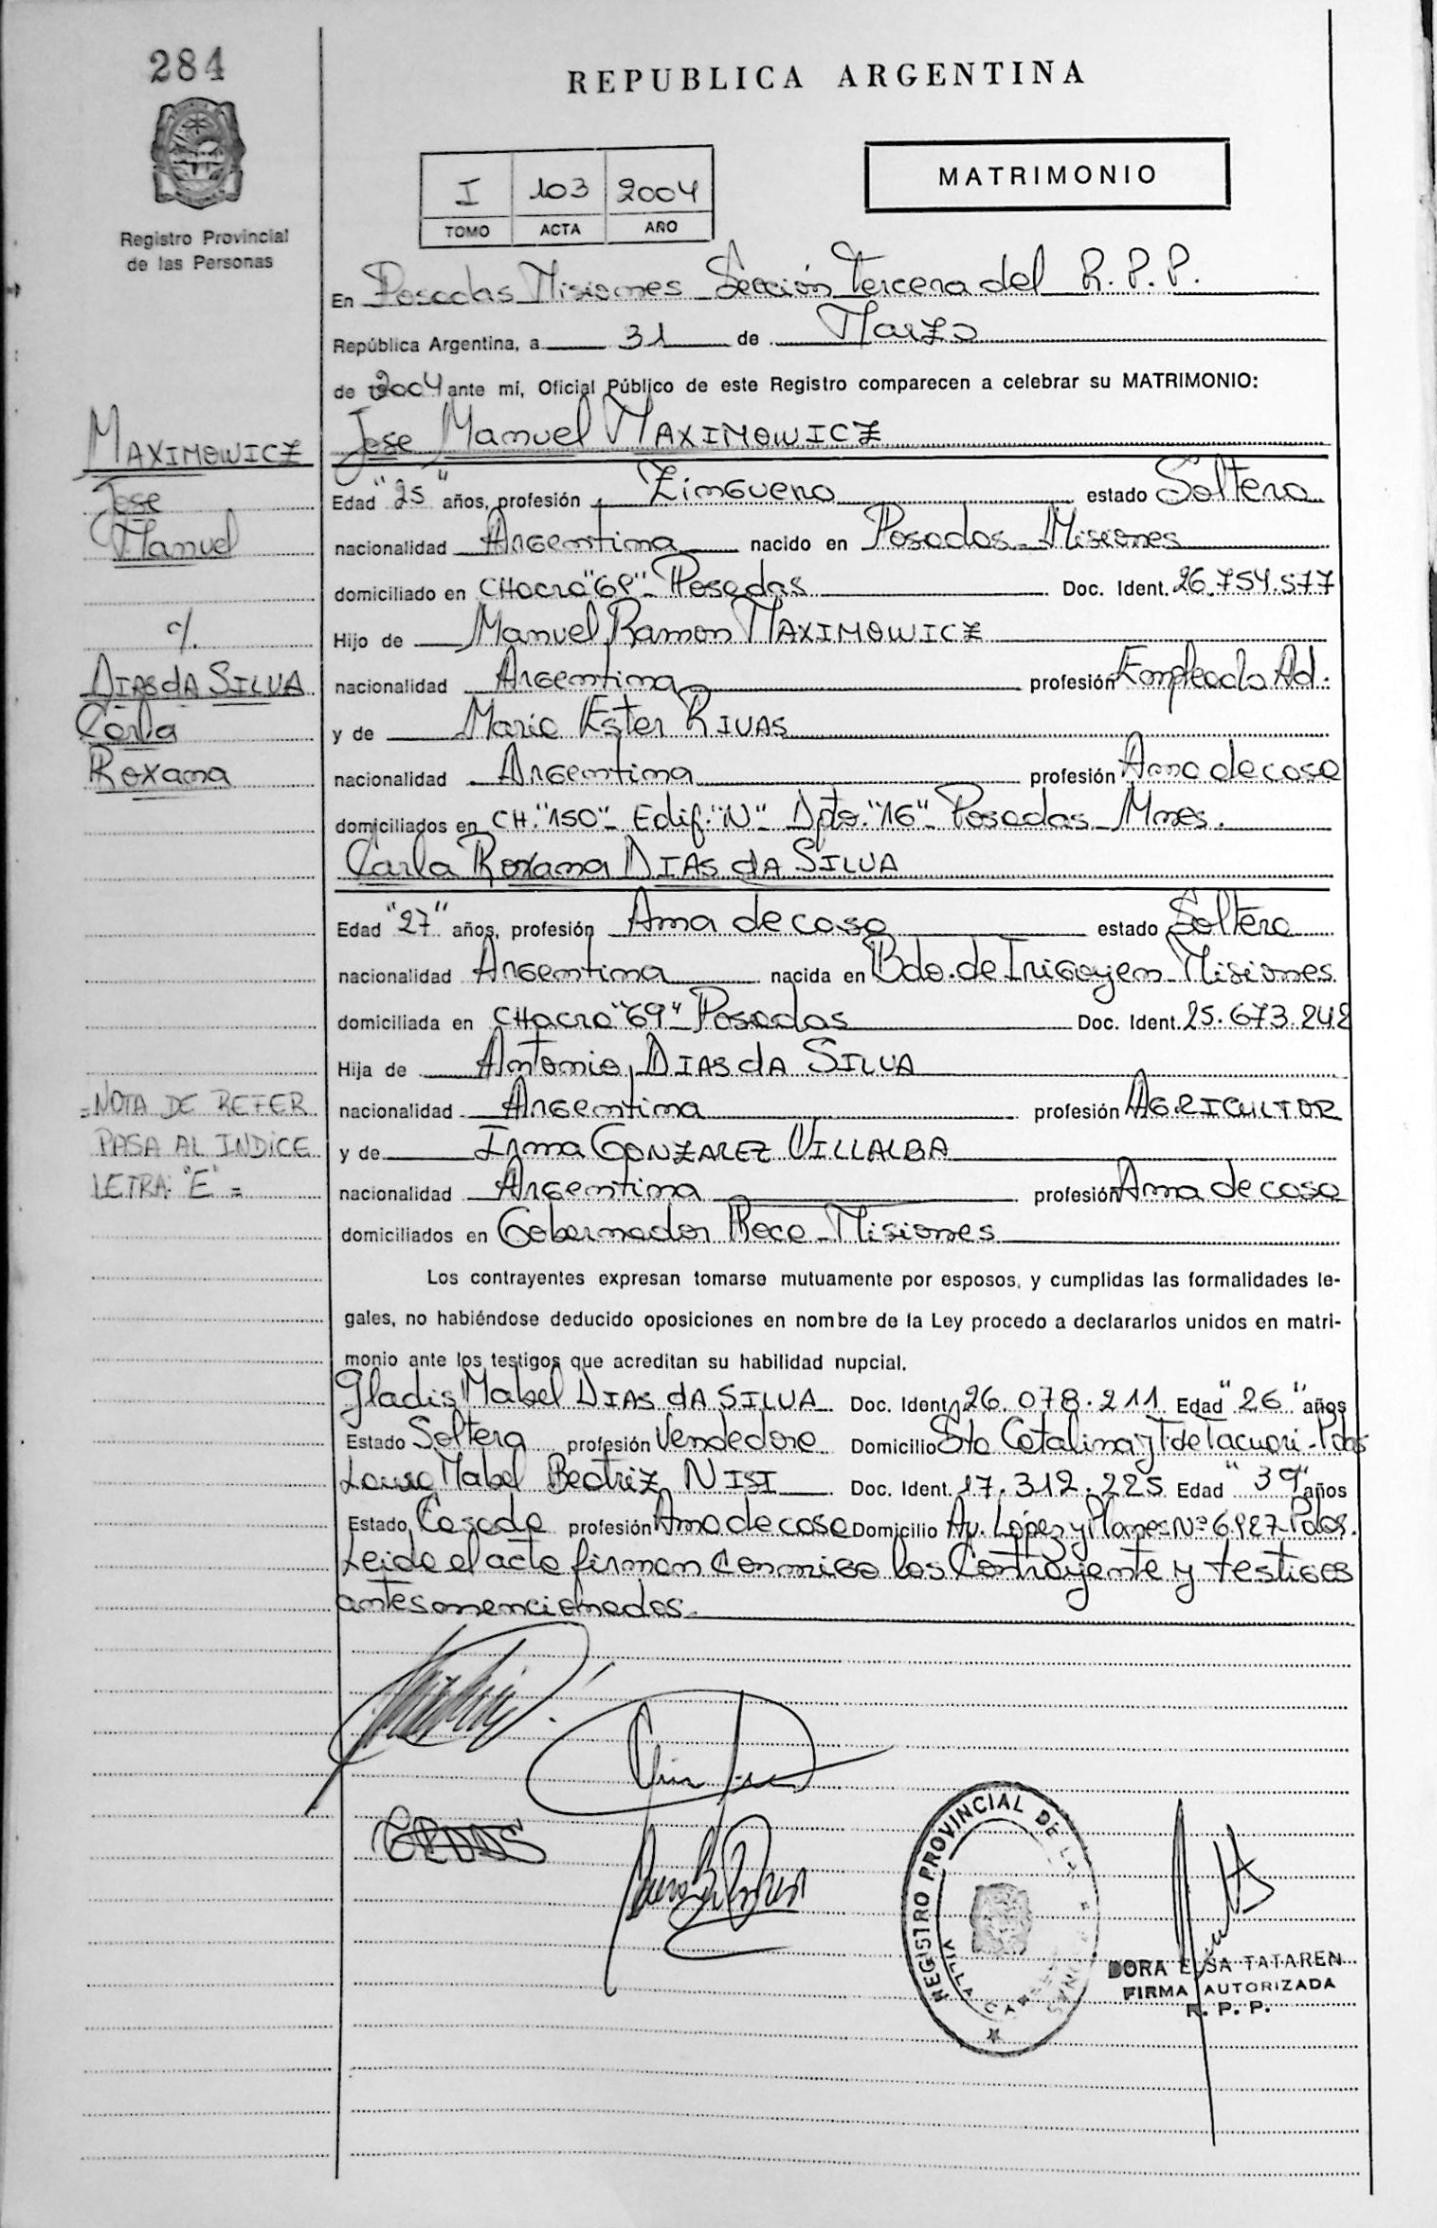 284
REPUBLICA ARGENTINA
MATRIMONIO
I 103 2004
TOMO ACTA AÑO
Registro Provincial
de las Personas
En Posadas Misiones Sección Tercera del R.P.P.
República Argentina, a 31 de Marzo
de 2004 ante mí, Oficial Público de este Registro comparecen a celebrar su MATRIMONIO:
Jose Manuel MAXIMOWICZ
MAXIMOWICZ
Jose
Manuel
c/.
DIAS dA SILVA
Carla
Roxana
Edad "25" años, profesión Zinguero estado Soltero
nacionalidad Argentina nacido en Posadas - Misiones
domiciliado en CHacra "69" - Posadas Doc. Ident. 26.754.577
Hijo de Manuel Ramon MAXIMOWICZ
nacionalidad Argentina profesión Empleado Ad.
y de Maria Ester RIVAS
nacionalidad Argentina profesión Ama de casa
domiciliados en CH. "150" - Edif. "N" - Dpto. "16" - Posadas - Mnes.
Carla Roxana DIAS dA SILVA
Edad "27" años, profesión Ama de casa estado Soltera
nacionalidad Argentina nacida en Bdo. de Irigoyen - Misiones
domiciliada en CHacra "69" - Posadas Doc. Ident. 25.673.242
Hija de Antonio DIAS dA SILVA
nacionalidad Argentina profesión AGRICULTOR
y de Irma GONZALEZ VILLALBA
nacionalidad Argentina profesión Ama de casa
domiciliados en Gobernador Roca - Misiones
=NOTA DE REFER
PASA AL INDICE
LETRA "E" =
Los contrayentes expresan tomarse mutuamente por esposos, y cumplidas las formalidades le-
gales, no habiéndose deducido oposiciones en nombre de la Ley procedo a declararlos unidos en matri-
monio ante los testigos que acreditan su habilidad nupcial.
Gladis Mabel DIAS dA SILVA Doc. Ident. 26.078.211 Edad "26" años
Estado Soltera profesión Vendedora Domicilio Sta Catalina y T de Tacuari - Pdas
Laura Mabel Beatriz NISI Doc. Ident. 17.312.225 Edad "39" años
Estado Casada profesión Ama de casa Domicilio Av. López y Planes Nº 6.127 - Pdas.
Leida el acta firman conmigo los Contrayente y testigos
antes mencionados.
REGISTRO PROVINCIAL DE LAS
VILLA
DORA ELSA TATAREN
FIRMA AUTORIZADA
R. P. P.